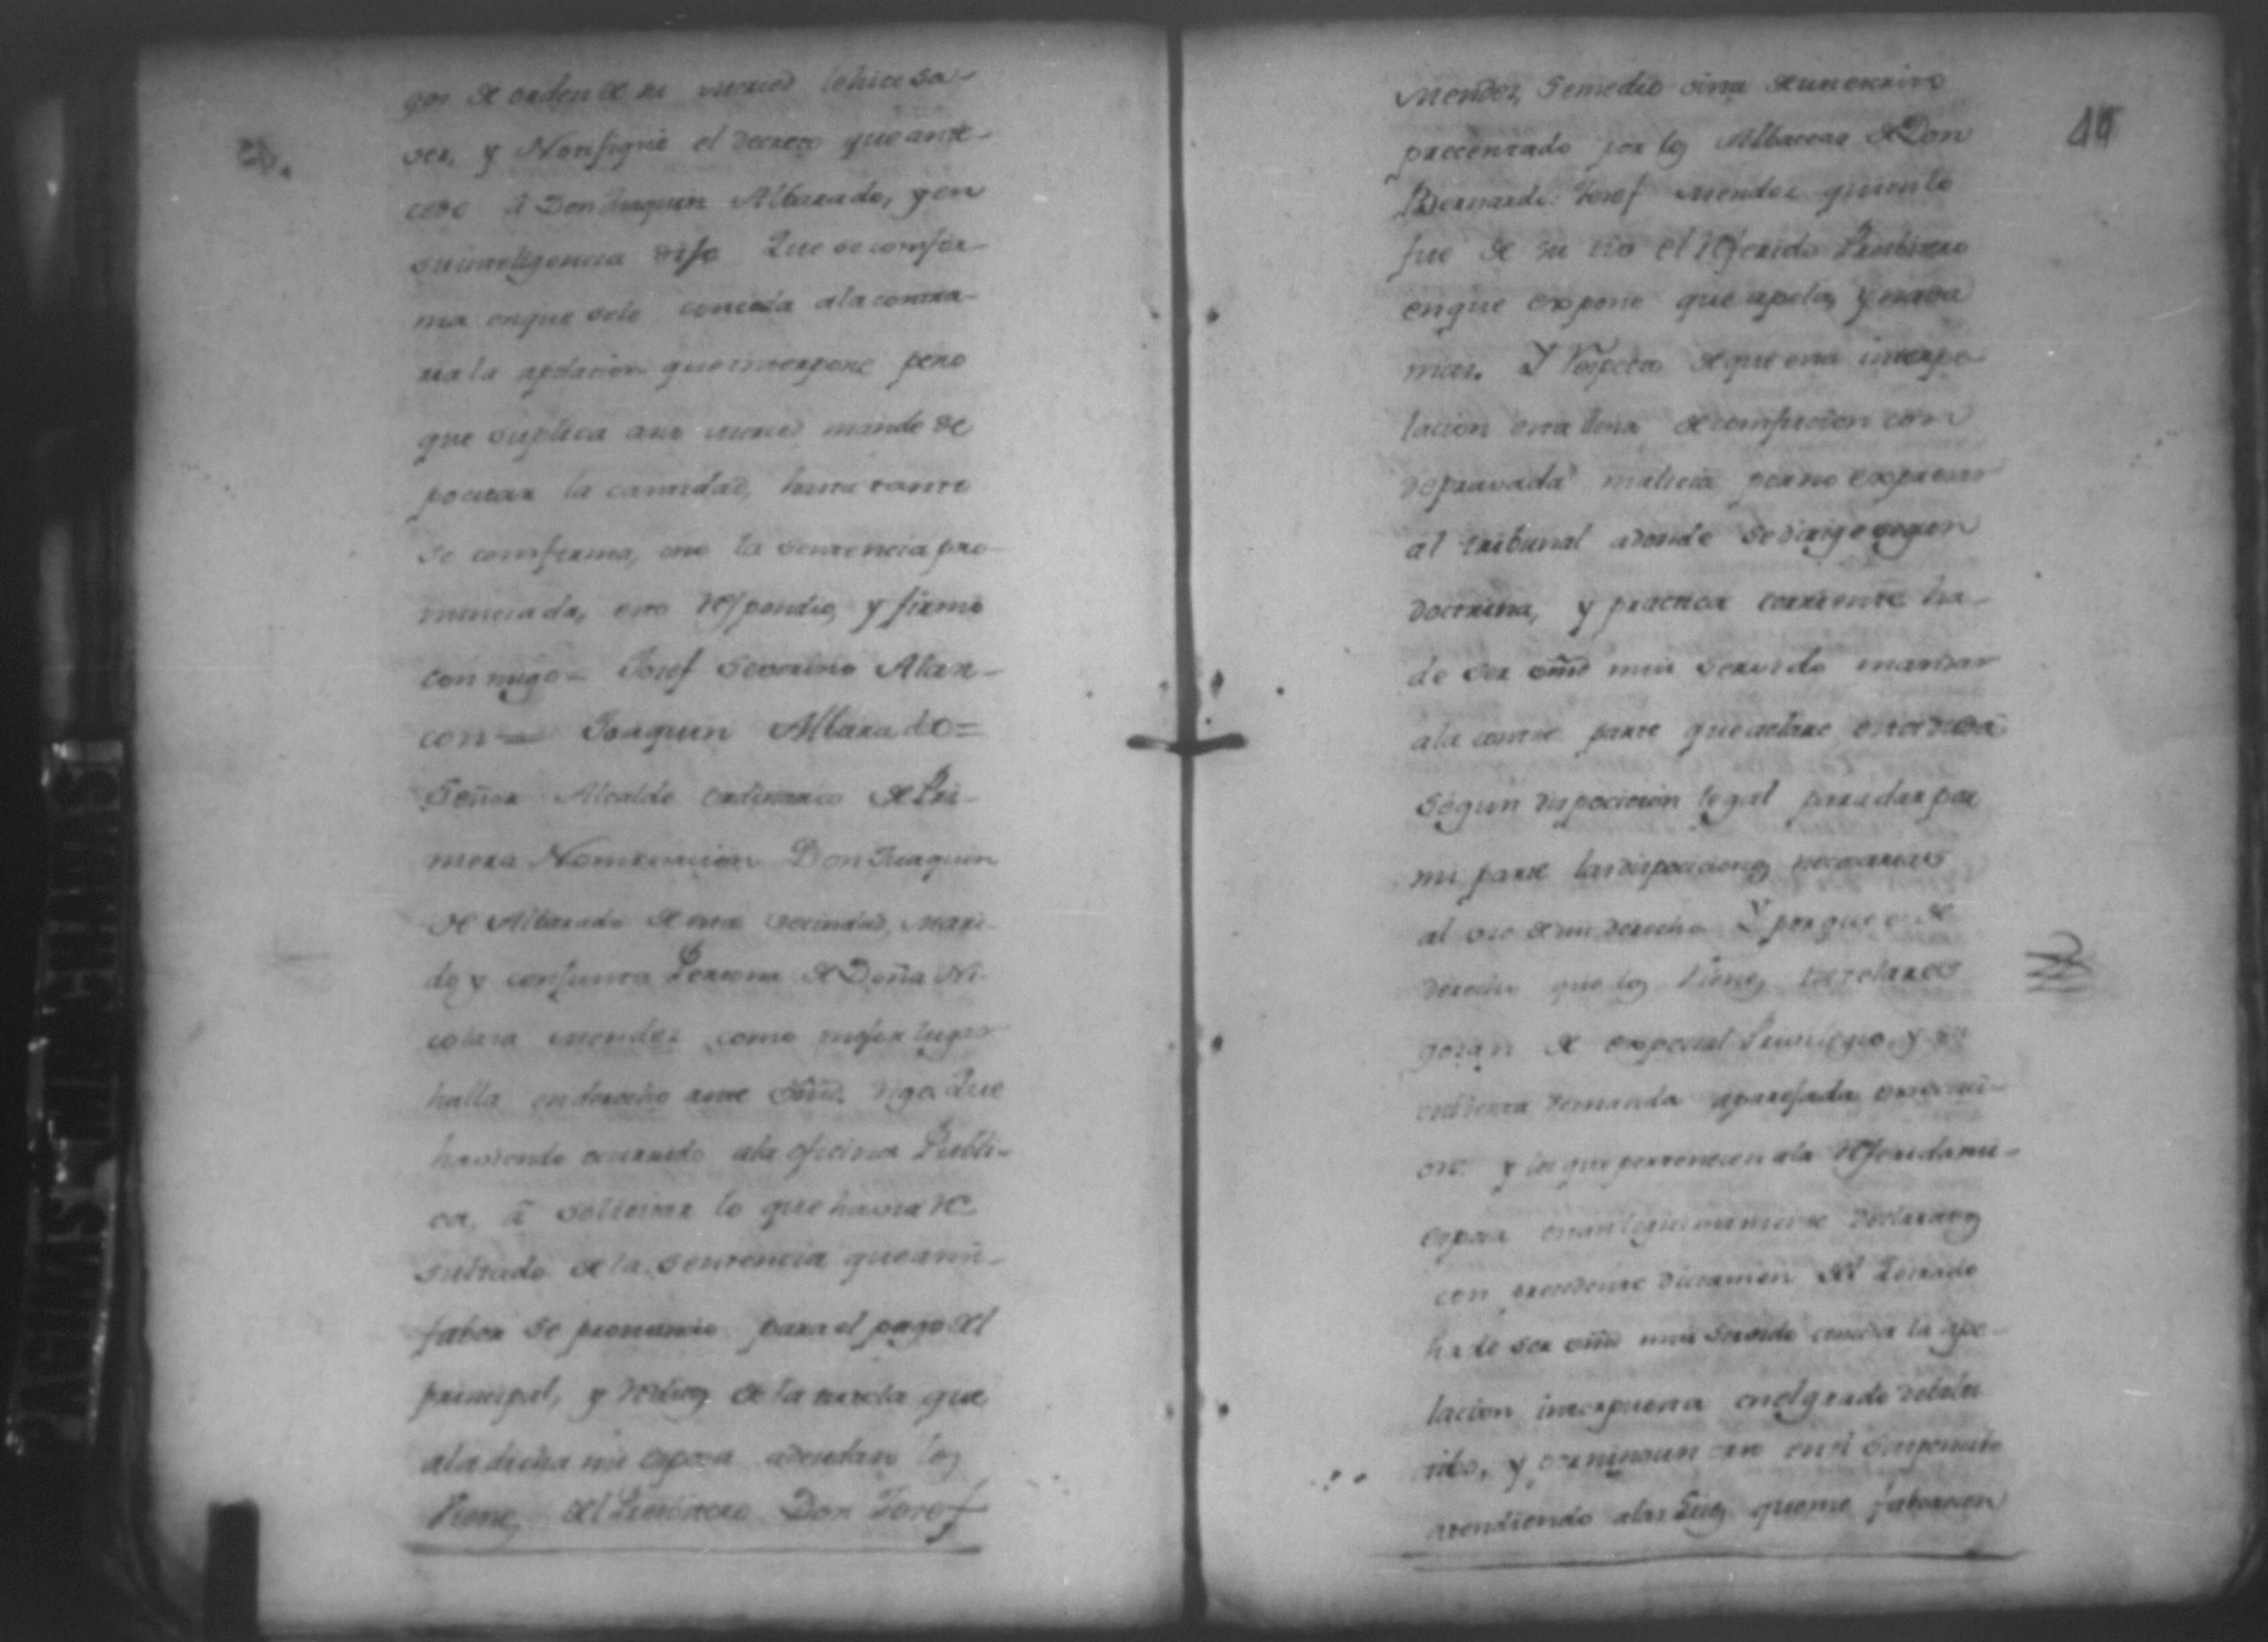 gos de orden de su merced le hice sa-
ver, y Notifiqué el decreto que ante-
cede â Don Juaquin Albarado, y en
su inteligencia dijo Que se confor-
ma en que sele conceda ala contra-
ria la apelacion que interpone pero
que suplica asu merced mande de
pocitar la cantidad, hasta tanto
se comfirma, ono la sentencia pro-
nunciada, esto respondio, y firmó
con migo = Josef Severino Alar-
con = Joaquin Albarado =
Señor Alcalde ordinario de Pri-
mera Nominacion Don Juaquin
de Albarado de esta vecindad, mari-
do y conjunta Persona de Doña Ni-
colasa Mendez como mejor lugar
halla en derecho ante Vmd. digo Que
haviendo ocurrido ala oficina Publi-
ca, â solicitar lo que havia re
sultado de la sentencia que ami-
fabor se pronunció para el pago del
principal, y reditos de la que
ala dicha mi esposa adeudan los
Vienes del Presbitero Don Josef
11
Mendez Semedio de un escrito
precentado por los Albaceas de Don
Bernardo Josef Mendez quien lo
fue de su tio el referido Presbitero
enque expone que apela, y nada
mas. Y respecto de que esta interpo
lacion esta llena de comfucion con
depravada malicia por no expresar
al tribunal adonde se dirige segun
doctrina, y practica corriente ha
de ser Vmd mui servido mandar
ala contra parte que aclare
segun dispocicion legal para dar por
mi parte las dispociciones necesarias
al uso de mi derecho Y por que es de
derecho que los Vienes
gozan de especial Privilegio y su
demanda aparejada
y los que pertenecen ala referida mi
esposa estan legitimamente declarados
con precedente dictamen del Letrado
ha de ser Vmd mui servido conceder la ape-
lacion interpuesta en el grado
y por ningun caso en el suspensibo
atendiendo alas Leies que me faborecen